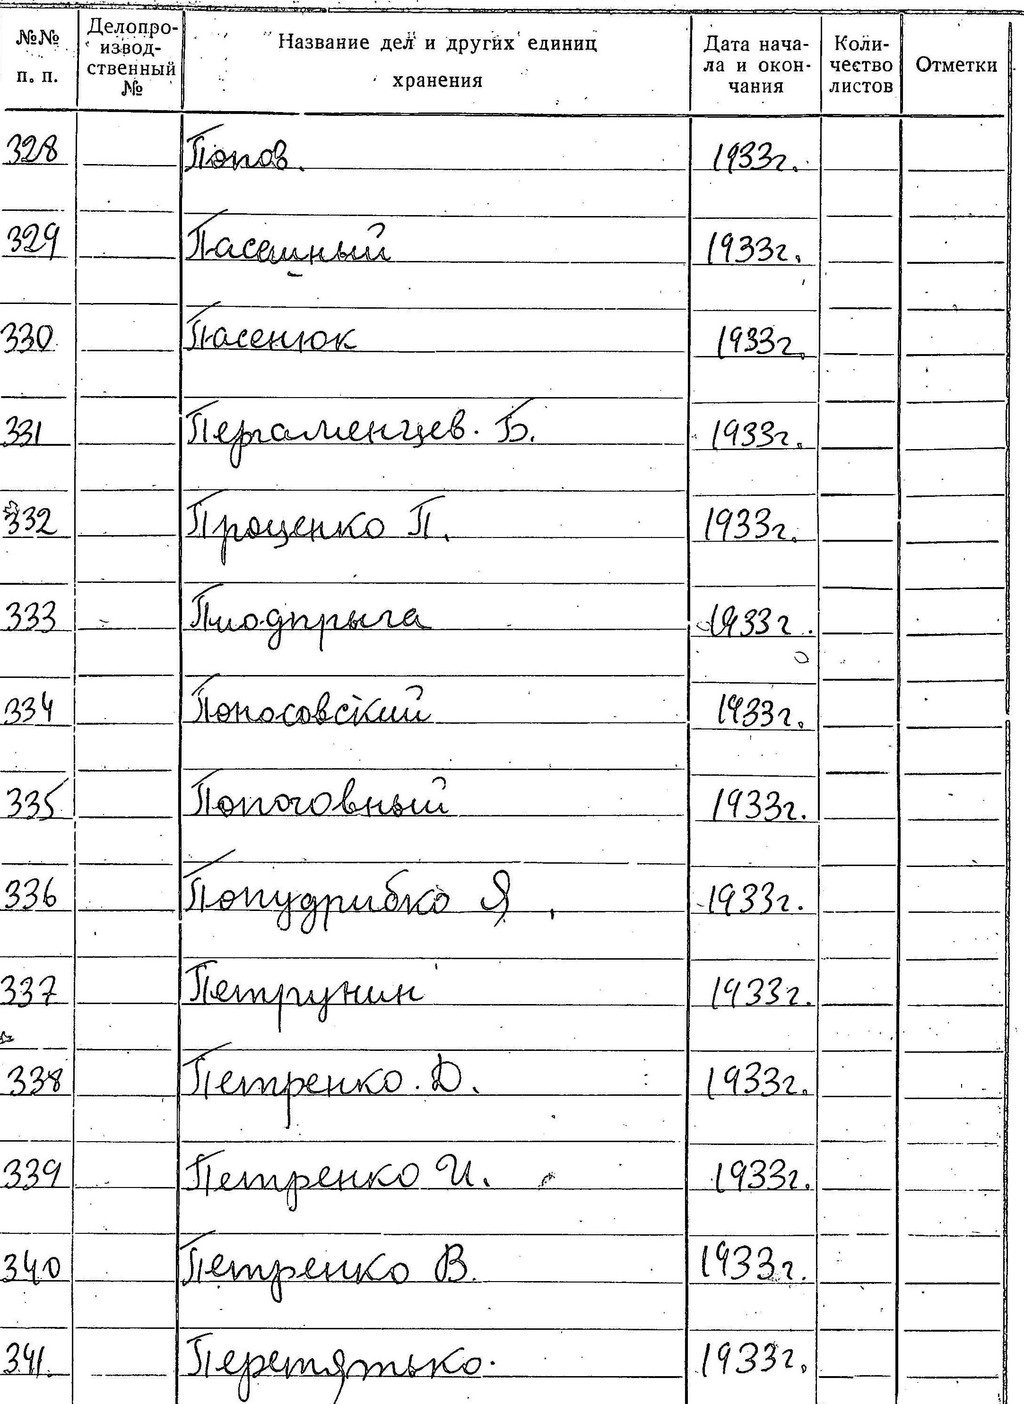 №№ п. п. Делопро-изводственный № Название дел и других единиц хранения Дата нача-ла и окон-чания Коли-чество листов Отметки
328 Попов. 1933г.
329 Пасешный 1933г.
330 Пасенюк 1933г.
331 Пергаменцев. Б. 1933г.
332 Проценко П. 1933г.
333 1933г.
334 Поносовский 1933г.
335 1933г.
336 Попудрибко Я 1933г.
337 Петрунин 1933г.
338 Петренко. Д. 1933г.
339 Петренко И. 1933г.
340 Петренко В. 1933г.
341. Перетятько. 1933г.